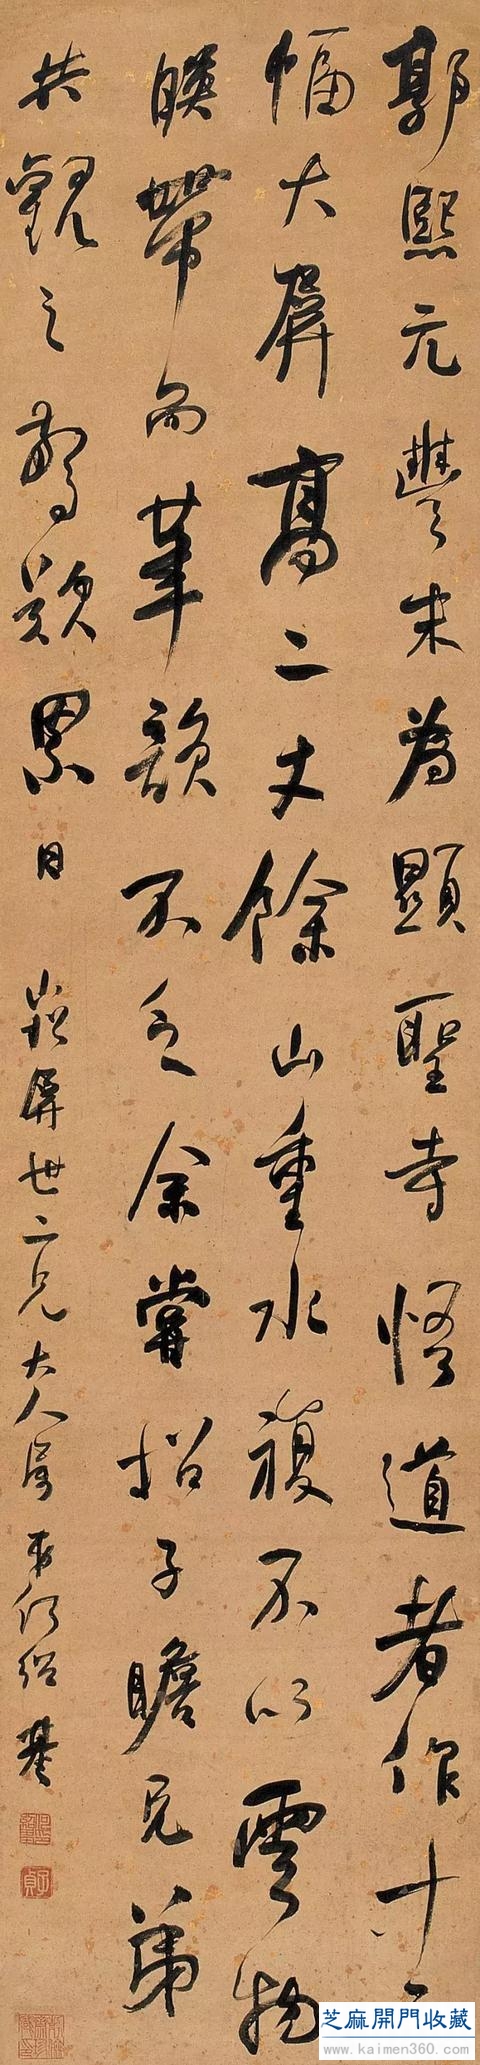 郭熙元豐末為顯聖寺悟道者作十二
幅大屏高二丈餘山重水複不以雲物
暎帶而筆韻不乏余嘗招子瞻兄弟
共觀之驚歎累日
屏世二兄大人屬 弟何紹基
子貞
芝麻開門收藏
www.kaimen360.com